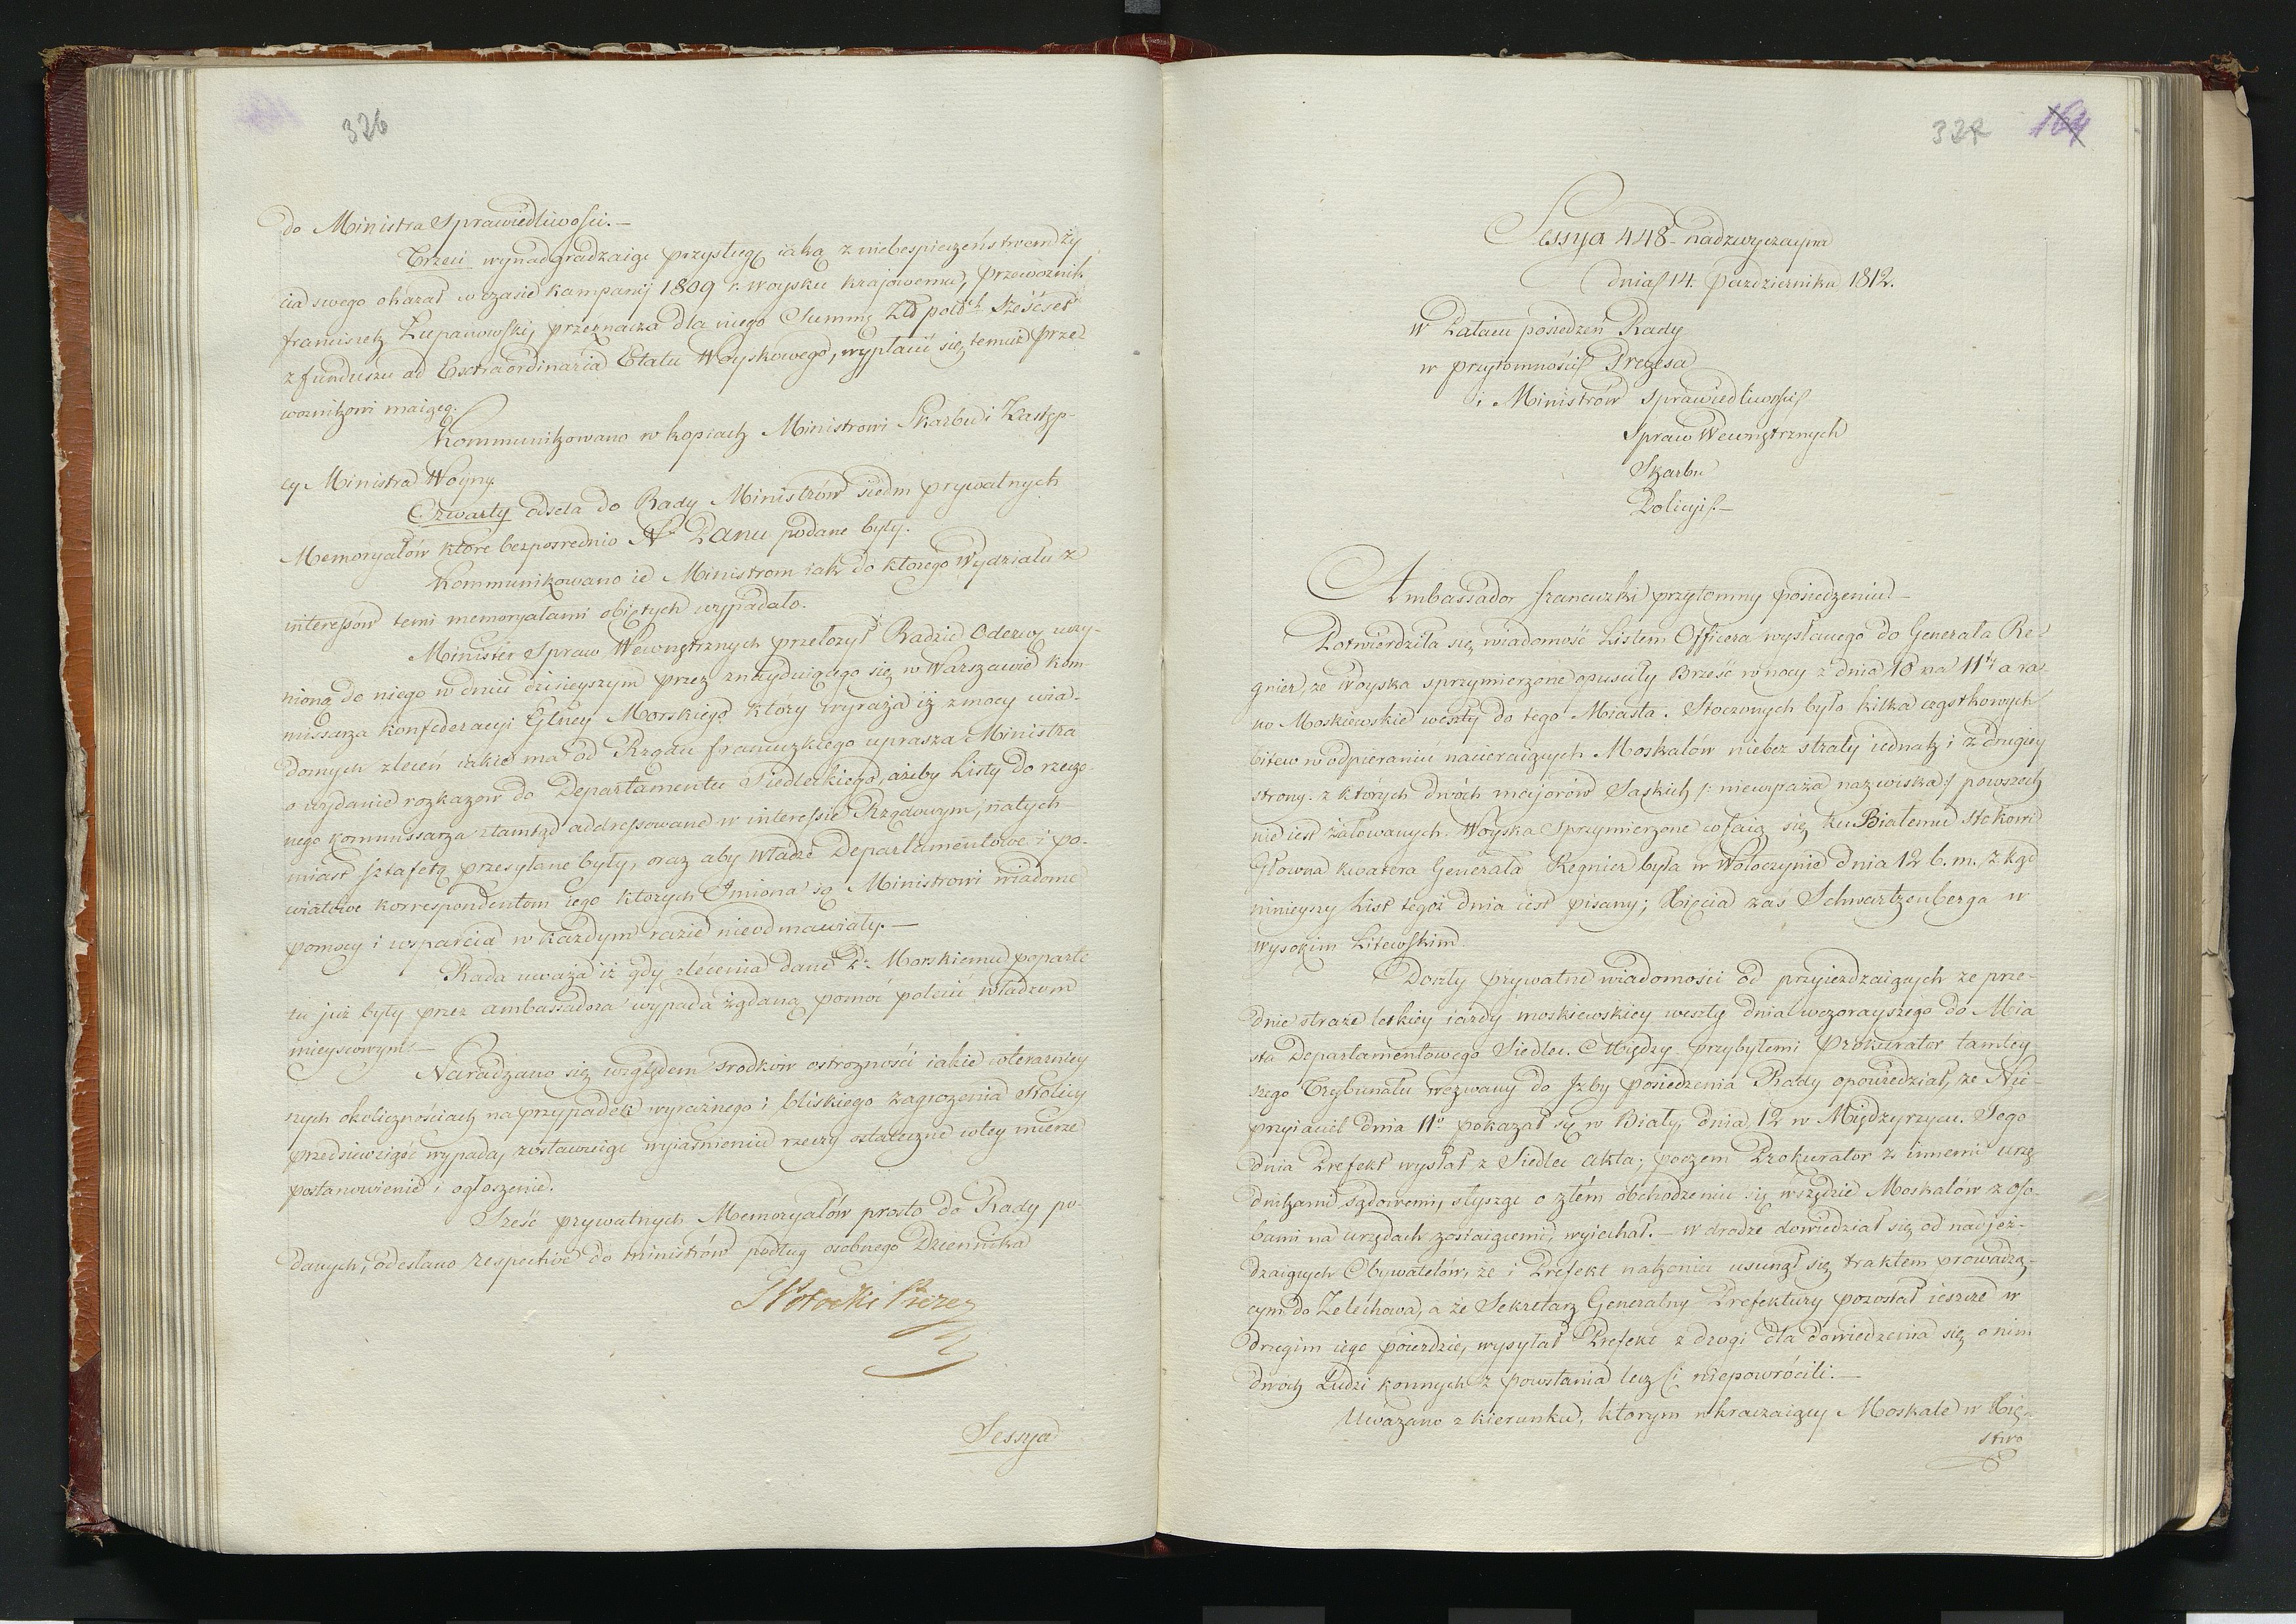 326
do Ministra Sprawiedliwości.—
Trzeci wynadgradzaiąc przysługę iaką z niebespieczeństwem ży
cia swego okazał w czasie kampanij 1809 r. woysku kraiowemu, przewoźnik
franciszek przeznacza dla niego Summę Zł polch sześćset
z funduszu ad Extraordinaria Etatu Woyskowego, wypłacić się temuż prze
woznikowi maiącą.
Kommunikowano w kopiach Ministrowi Skarbu i Zastęp-
cy Ministra Woyny.
Czwarty odseła do Rady Ministrów siedm prywatnych
Memoryałów które bezpośrednio Nu Panu podane były.
Kommunikowano ie Ministrom iak do którego Wydziału z
interessów temi memoryałami obiętych wypadało.
Minister Spraw Wewnętrznych przełożył Radzie Odezwę uczy-
nioną do niego w dniu dzisieyszym przez znayduiącego się w Warszawie kom
missarza konfederacyi Glney Morskiego który wyraża iż z mocy wia-
domych zleceń iakie ma od Rządu francuzkiego uprasza Ministra
o wydanie rozkazow do Departamentu Siedleckiego, ażeby Listy do rzeczo
nego kommissarza ztamtąd addressowane w interessie Rządowym, natych
miast sztafetą przesyłane były, oraz aby władze Departamentowe i po-
wiatowe korrespondentom iego których Imiona są Ministrowi wiadome
pomocy i wsparcia w każdym razie nieodmawiały.—
Rada uważa iż gdy zlecenia dane P. Morskiemu poparte
tu już były przez ambassadora wypada żądaną pomoc polecić władzom
mieyscowym.—
Naradzano się względem srodków ostrożności iakie w teraźniey
szych okolicznościach na przypadek wyraźnego i bliskiego zagrożenia stolicy
przedsiewziąść wypada, zostawuiąc wyiaśnieniu rzeczy ostateczne w tey mierze
postanowienie i ogłoszenie.
Sześć prywatnych Memoryałów prosto do Rady po-
danych, odesłano respective do ministrów podług osobnego Dziennika
SPotocki Prezes
Sessya
327 164
Sessya 448 nadzwyczayna
dnia 14. Października 1812.
w Pałacu posiedzeń Rady
w przytomności Prezesa
i Ministrów Sprawiedliwości
Spraw Wewnętrznych
Skarbu
Policyi.—
Ambassador francuzki przytomny posiedzeniu—
Potwierdziła się wiadomość Listem Officera wysłanego do Generała Re-
gnier, że Woyska sprzymierzone opuściły Brześć w nocy z dnia 10 na 11ty a ra-
no Moskiewskie weszły do tego Miasta. Stoczonych było kilka cząstkowych
bitew w odpieraniu nacieraiących Moskalów niebez straty iednak i z drugiey
strony. z których dwóch maiorów Saskich /: niewyraża nazwiska :/ powszech
nie iest żałowanych. Woyska Sprzymierzone cofaią się ku Białemu stokowi
Głowna kwatera Generała Regnier była w Wołoczynie dnia 12 b. m. z kąd
ninieyszy List tegoż dnia iest pisany; Xięcia zaś Schwartzenberga w
wysokim Litewskim.
Doszły prywatne wiadomości od przyieżdzaiących że prze-
dnie straże lekkiey iazdy moskiewskiey weszły dnia wczorayszego do Mia
sta Departamentowego Siedlec. Między przybyłemi Prokurator tamtey
szego Trybunału wezwany do Izby posiedzenia Rady opowiedział, że Nie-
przyiaciel dnia 11o pokazał się w Biały, dnia 12 w Międzyrzycu. Tego
dnia Prefekt wysłał z Siedlec akta; poczem Prokurator z innemi urzę
dnikami sądowemi, słysząc o złém obchodzeniu się wszędzie Moskalów z oso-
bami na urzędach zostaiącemi, wyiechał.— w drodze dowiedział się od nadjeż-
dzaiących Obywatelów, że i Prefekt nakoniec usunął się traktem prowadzą-
cym do Żelechowa, a że Sekretarz Generalny Prefektury pozostał ieszcze w
drugim iego poieździe, wysyłał Prefekt z drogi dla dowiedzenia się o nim
dwóch Ludzi konnych z powstania lecz ci niepowrócili.—
Uważano z kierunku, którym wkraczaiący Moskale w Xię-
stwo